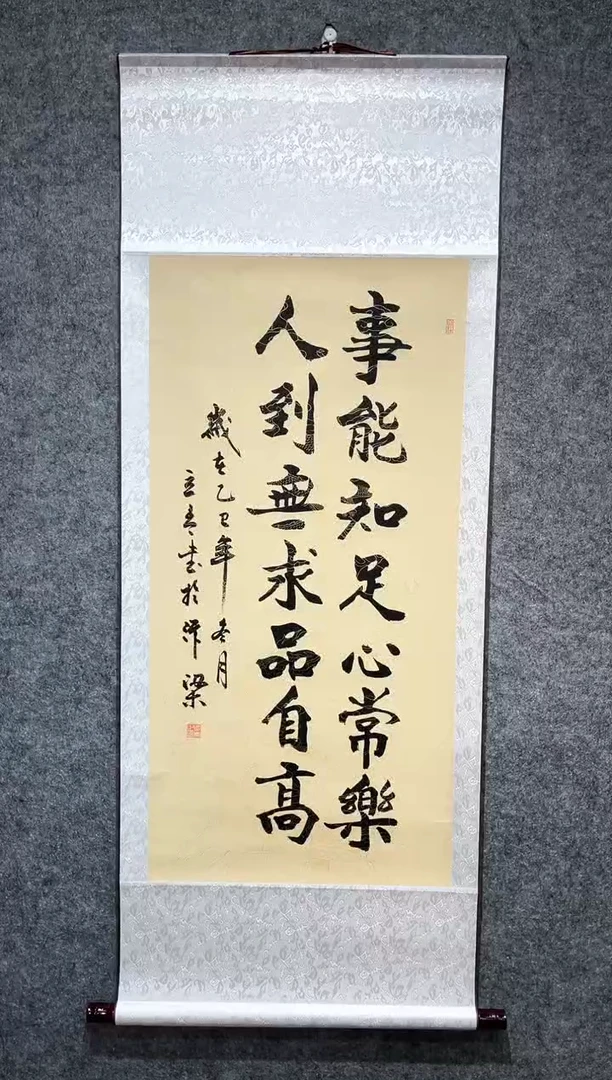 事能知足心常樂
人到無求品自高
歲在乙巳年冬月
立志书於汴梁